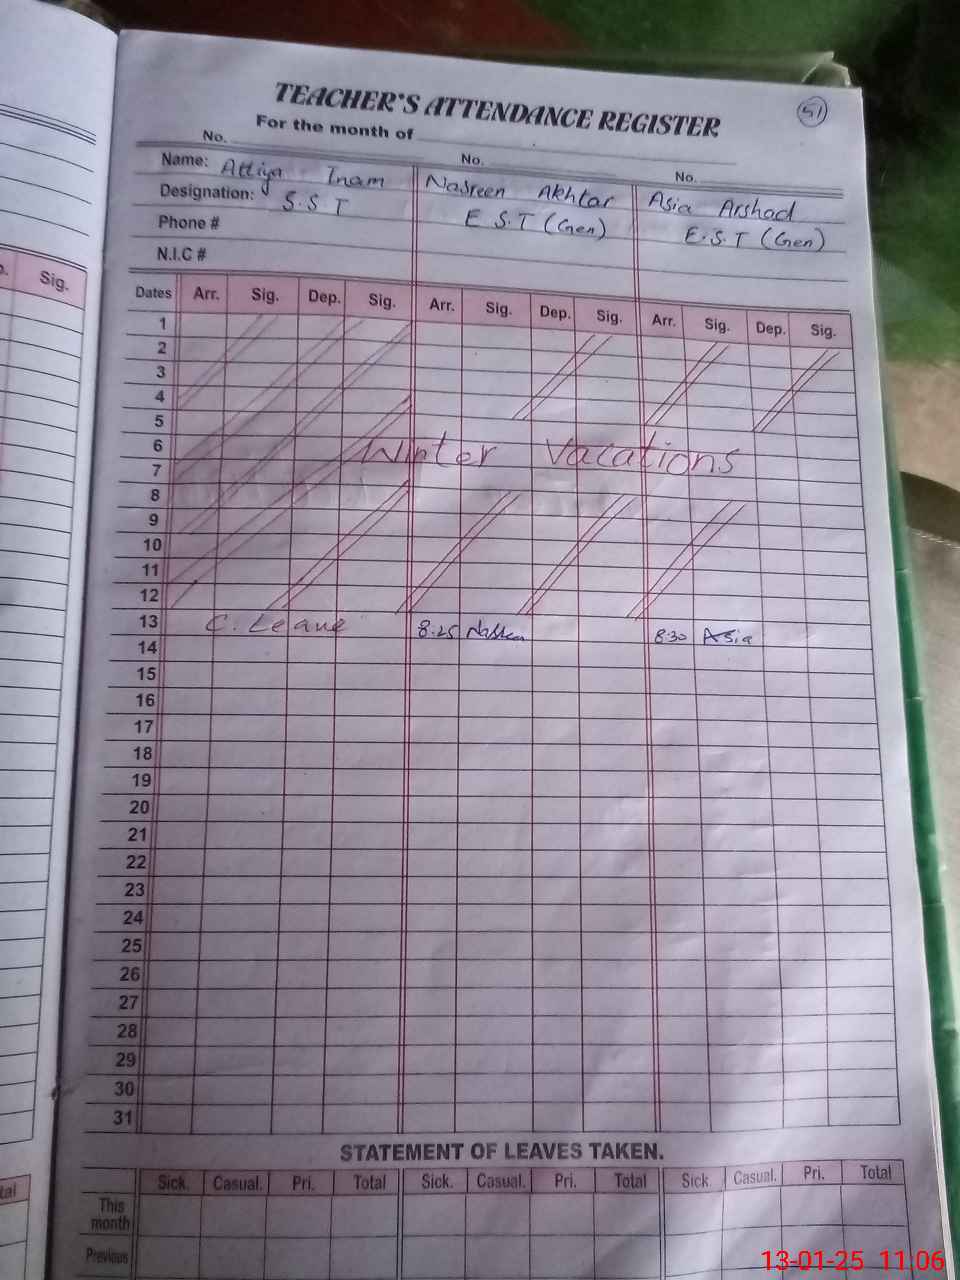 51
TEACHER'S ATTENDANCE REGISTER
For the month of
No. No. No.
Name: Attiya Inam Nasreen Akhtar Asia Arshad
Designation: S.S.T E S.T (Gen) E.S.T (Gen)
Phone #
N.I.C #
Sig.
Dates Arr. Sig. Dep. Sig. Arr. Sig. Dep. Sig. Arr. Sig. Dep. Sig.
1
2
3
4
5
6 Winter Vacations
7
8
9
10
11
12
13 C. Leave 8.25 Nasreen 8.30 Asia
14
15
16
17
18
19
20
21
22
23
24
25
26
27
28
29
30
31
STATEMENT OF LEAVES TAKEN.
Sick. Casual. Pri. Total Sick. Casual. Pri. Total Sick. Casual. Pri. Total
This
month
Previous
13-01-25 11:06